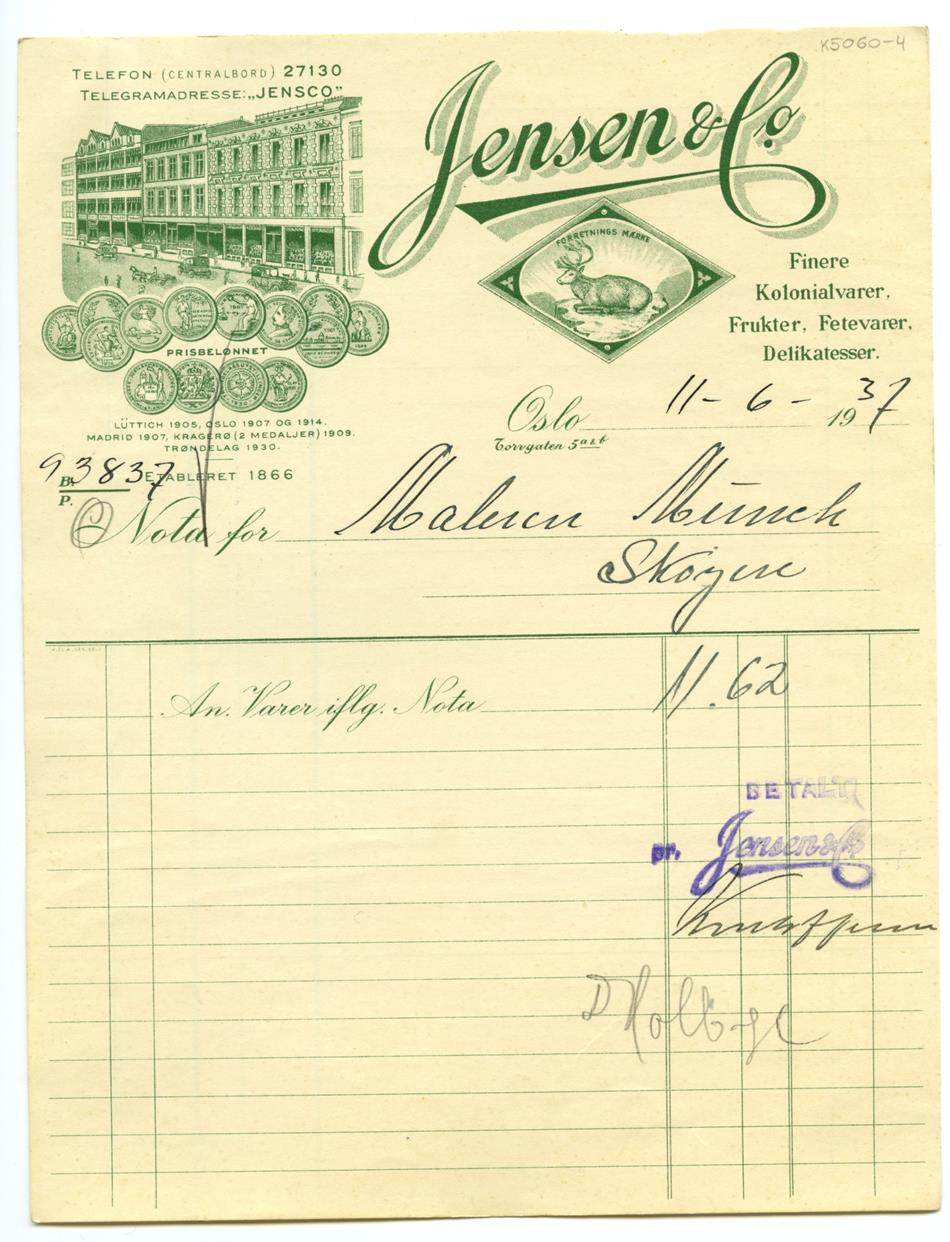 K5060-4
TELEFON (CENTRALBORD) 27130
TELEGRAMADRESSE: „JENSCO"
Jensen & Co.
FORRETNINGS MÆRKE
Finere
Kolonialvarer,
Frukter, Fetevarer,
Delikatesser.
PRISBELØNNET
LÜTTICH 1905, OSLO 1907 OG 1914.
MADRID 1907, KRAGERØ (2 MEDALJER) 1909.
TRØNDELAG 1930.
Oslo 11-6-1937
Torvgaten 5 a & b
B. 93837
P.
ETABLERET 1866
Nota for Maleren Munch
Skøyen
An. Varer iflg. Nota 11.62
BETALT
pr. Jensen & Co.